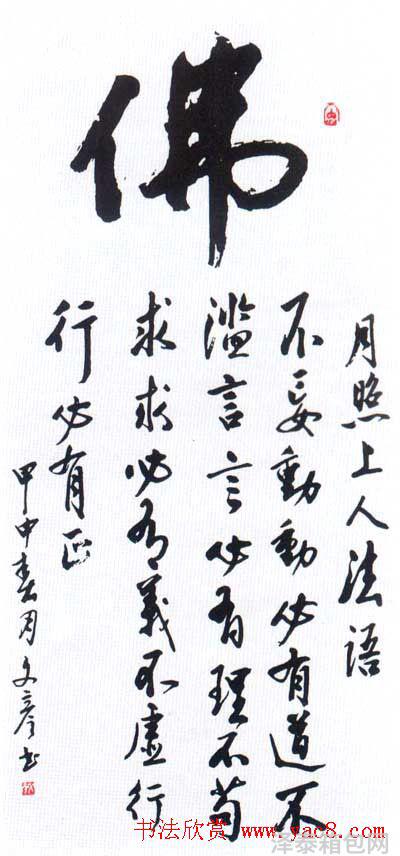 佛
月照上人法语
不妄動動必有道不
滥言言必有理不苟
求求必有義不虚行
行必有正
甲申春月文彦书
书法欣赏 www.yac8.com
泽泰箱包网